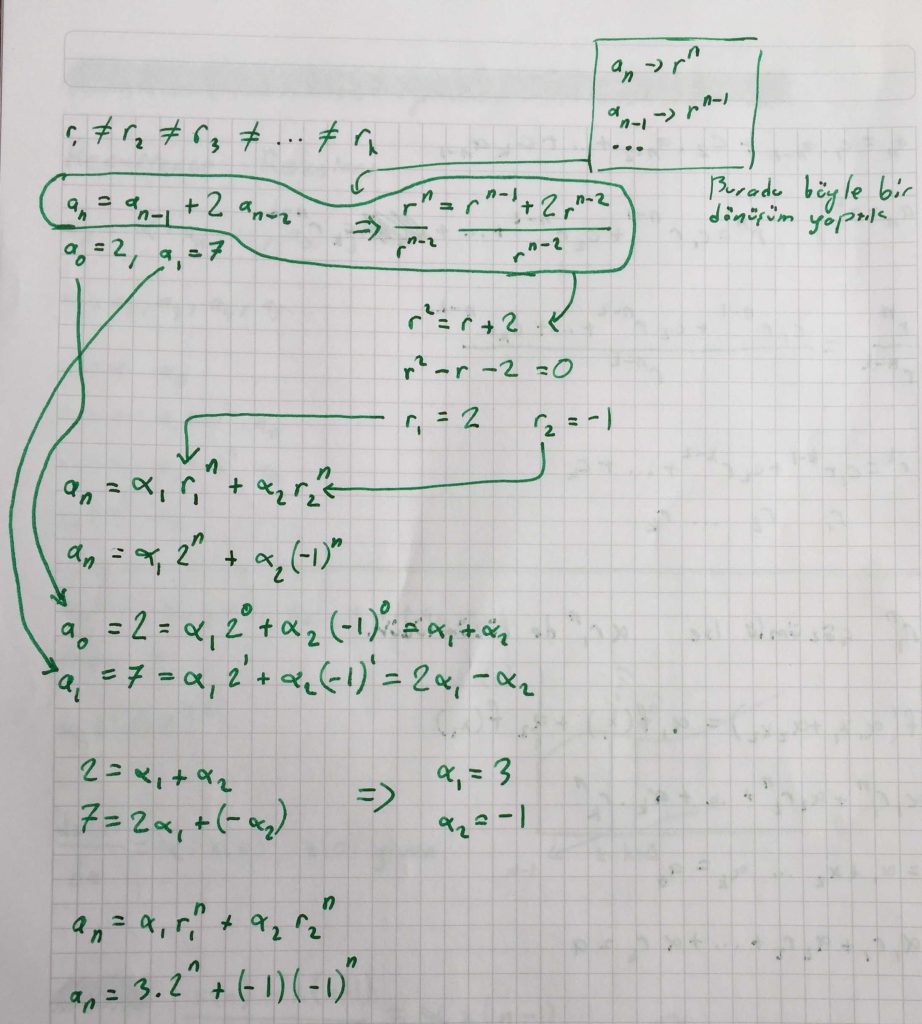 aₙ → rⁿ
aₙ₋₁ → rⁿ⁻¹
...
r₁ ≠ r₂ ≠ r₃ ≠ ... ≠ rₖ
Burada böyle bir
dönüşüm yaptık
aₙ = aₙ₋₁ + 2 aₙ₋₂ ⇒ rⁿ/rⁿ⁻² = (rⁿ⁻¹ + 2rⁿ⁻²)/rⁿ⁻²
a₀ = 2, a₁ = 7
r² = r + 2
r² - r - 2 = 0
r₁ = 2 r₂ = -1
aₙ = α₁ r₁ⁿ + α₂ r₂ⁿ
aₙ = α₁ 2ⁿ + α₂ (-1)ⁿ
a₀ = 2 = α₁ 2⁰ + α₂ (-1)⁰ = α₁ + α₂
a₁ = 7 = α₁ 2¹ + α₂ (-1)¹ = 2α₁ - α₂
2 = α₁ + α₂ ⇒ α₁ = 3
7 = 2α₁ + (-α₂) α₂ = -1
aₙ = α₁ r₁ⁿ + α₂ r₂ⁿ
aₙ = 3.2ⁿ + (-1)(-1)ⁿ